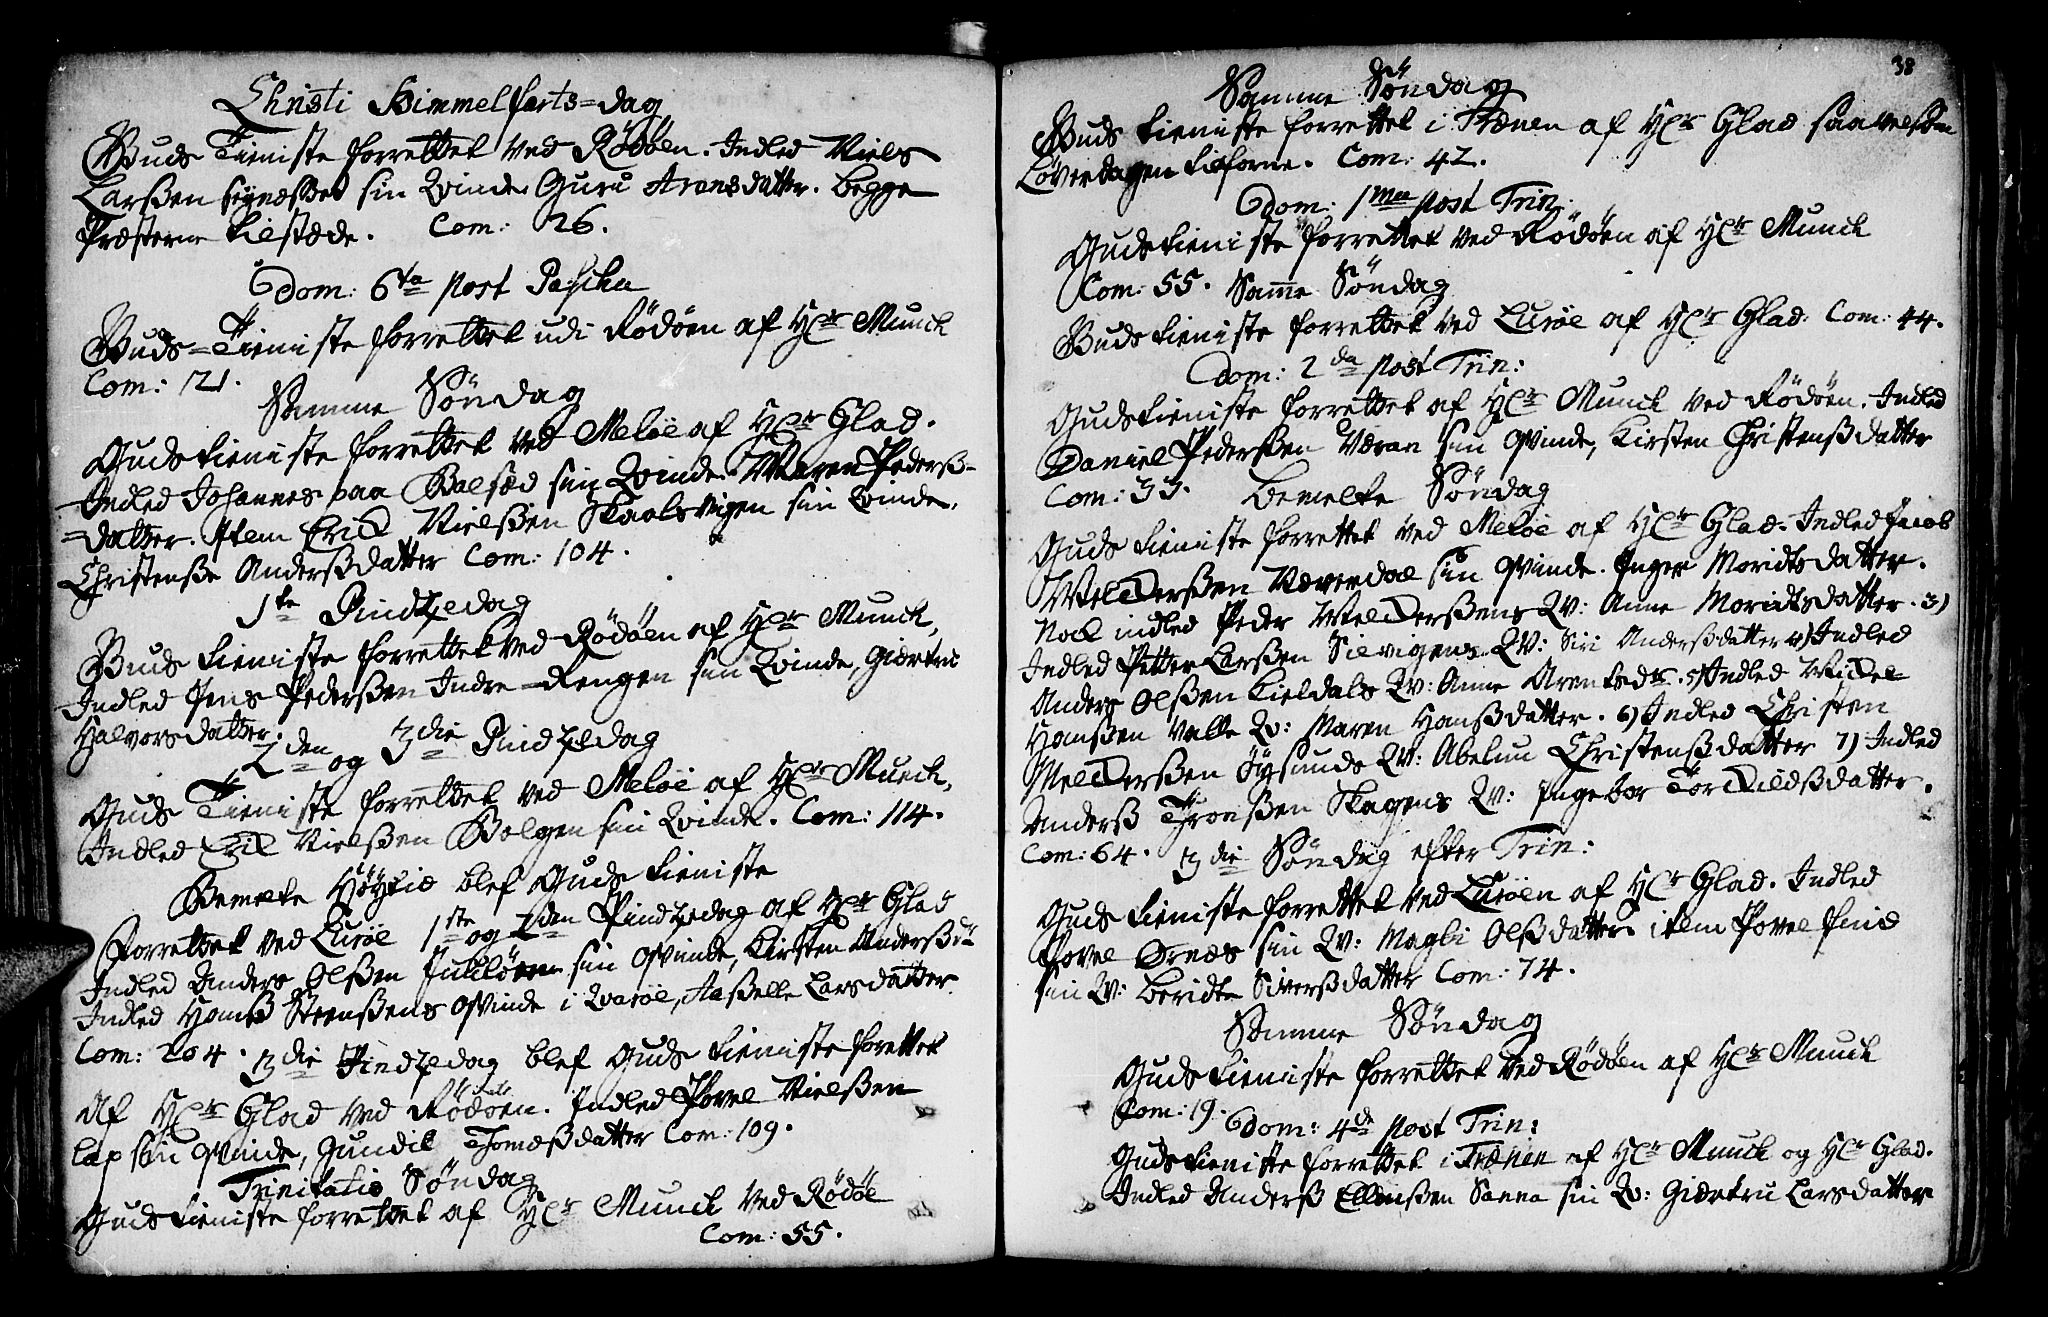 Christi Himmelfarts=dag
Guds Tieniste forrettet ved Rödöen. Indled Niels
Larßen sin Qvinde Guru Aronsdatter. begge
Præsterne tilstæde. Com: 26.
Dom: 6ta post Pascha
Guds=Tieniste forrettet udi Rödöen af Hr Munck
Com: 21.
Samme Söndag
Guds tieniste forrettet ved Meløe af Hr Glad.
Indled Johannes paa Balsød sin Qvinde Maren Pederß=
=datter. Item Erich Nielßen Skaalsvigen sin Qvinde,
Christenße Anderßdatter Com: 104.
1te Pindtzedag
Guds tieniste forrettet ved Rödöen af Hr Munck,
Indled Jens Pederßen Indre=Rengen sin Qvinde, Giertru
Halvorsdatter.
2den og 3die Pindtzedag
Guds Tieniste forrettet ved Meløe af Hr Munck,
Indled Erik Nielßen Bolgen sin Qvinde. Com: 114.
Bemelte Höÿtid blef Guds tieniste
Forrettet ved Luröe 1ste og 2den Pindtzedag af Hr Glad
Indled Anders Olßen sin Qvinde, Kirsten Anderßdr
Indled Hanß Steenßens Qvinde i Qvaröe, Aaßelle Larsdatter
Com: 204. 3die Pindtzedag blef Guds tieniste forettet
Af Hr Glad ved Rödöen. Indled Povel Nielßen
Lap sin Qvinde, Gundil Thomæßdatter Com: 109.
Trinitatis Söndag
Guds tieniste forrettet af Hr Munck ved Rödöe
Com: 55.
38
Samme Söndag
Guds tieniste forrettet i Trænen af Hr Glad saavelsom
Löverdagen tilforne. Com: 42.
Dom: 1ma post Trin:
Guds tieniste forrettet ved Rödöen af Hr Munck
Com: 55. Samme Söndag
Guds tieniste forrettet ved Luröe af Hr Glad. Com: 44.
Dom: 2da post Trin:
Guds tieniste forrettet af Hr Munck ved Rödöen. Indled
Daniel Pederßen Væran sin Qvinde, Kirsten Christenßdatter
Com: 33. bemelte Söndag
Guds tieniste forrettet ved Meløe af Hr Glad. Indled Jacob
sin Qvinde. Inger Moridtsdatter.
Nock indled Peder Qv: Anne Moridtsdatter. 3)
Indled Pitter Larßen Silvigens Qv: Siri Anderßdatter 4) Indled
Anders Olßen Kieldals Qv: Anne Arentsdr. 5) Indled Michel
Hanßen Valle Qv: Maren Hanßdatter. 6) Indled Christen
Qv: Abelun Christenßdatter 7) Indled
Anderß Thronßen Skagens Qv: Ingebor Torchildßdatter.
Com: 64. 3die Söndag efter Trin:
Guds tieniste forrettet ved Luröen af Hr Glad. Indled
Povel Ørnes sin Qv: Magli Olßdatter item Povel Find
sin Qv: Beridte Siverßdatter Com: 74.
Samme Söndag
Guds tieniste forrettet ved Rödöen af Hr Munck
Com: 19.
Dom: 4de post Trin:
Guds tieniste forrettet i Trænen af Hr Munck og Hr Glad.
Indled Anderß Ellenßen Sanna sin Qv: Giertru Larsdatter